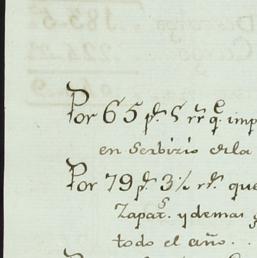 Por 65 p.s 5 rr.s q.e imp
en Serbizio de la
Por 79 p.s 3½ rr.s que
Zapat.s y demas g
todo el año..